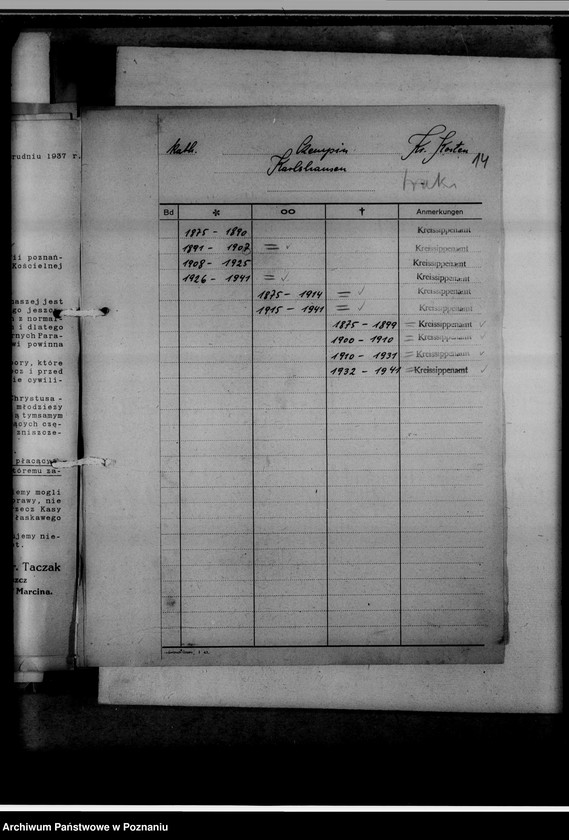 rudniu 1937 r.
ii poznań-
Kościelnej
naszej jest
go jeszcze
z normal-
i dlatego
rnych Para-
wi powinna
bory, które
ecz i przed
ie cywili-
Chrystusa -
młodzieży
ą tymsamym
ących czę-
zniszcze-
płacący
tóremu za-
jemy mogli
prawy, nie
rzecz Kasy
łaskawego
ujemy nie-
t.
r. Taczak
szcz
Marcina.
kath. Czempin Kr. Kosten 14
Karlshausen
brak
Bd * ∞ † Anmerkungen
1875 - 1890 Kreissippenamt
1891 - 1907 = ✓ Kreissippenamt
1908 - 1925 Kreissippenamt
1926 - 1941 = ✓ Kreissippenamt
1875 - 1914 = ✓ Kreissippenamt
1915 - 1941 = ✓ Kreissippenamt
1875 - 1899 = Kreissippenamt ✓
1900 - 1910 = Kreissippenamt ✓
1910 - 1931 = Kreissippenamt ✓
1932 - 1941 = Kreissippenamt ✓
Archiwum Państwowe w Poznaniu